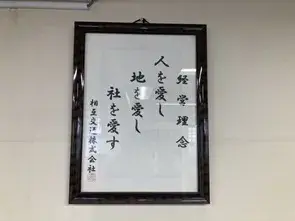 経営理念
人を愛し
地を愛し
社を愛す
相互交通株式会社